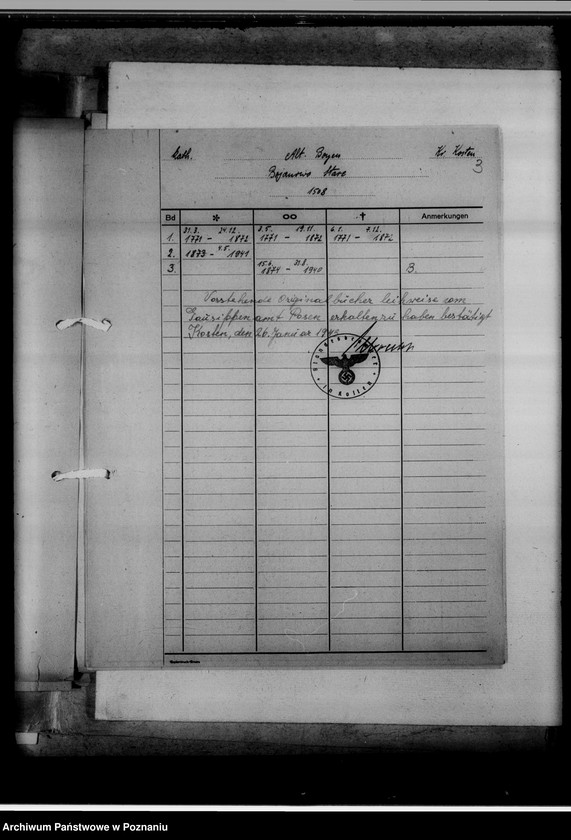 Kath. Alt. Boyen Kr. Kosten
3
Bojanowo Stare
1508
Bd * ∞ † Anmerkungen
31.8. 24.12. 3.5. 19.11. 6.1. 7.12.
1. 1771 - 1872 1771 - 1872 1771 - 1872
2. 1873 - 4.5. 1941
3. 15.6. 1874 - 31.8. 1940 B.
Vorstehende Originalbücher leihweise vom
Gausippenamt Posen erhalten zu haben bestätigt
Kosten, den 26. Januar
in Kosten
Archiwum Państwowe w Poznaniu